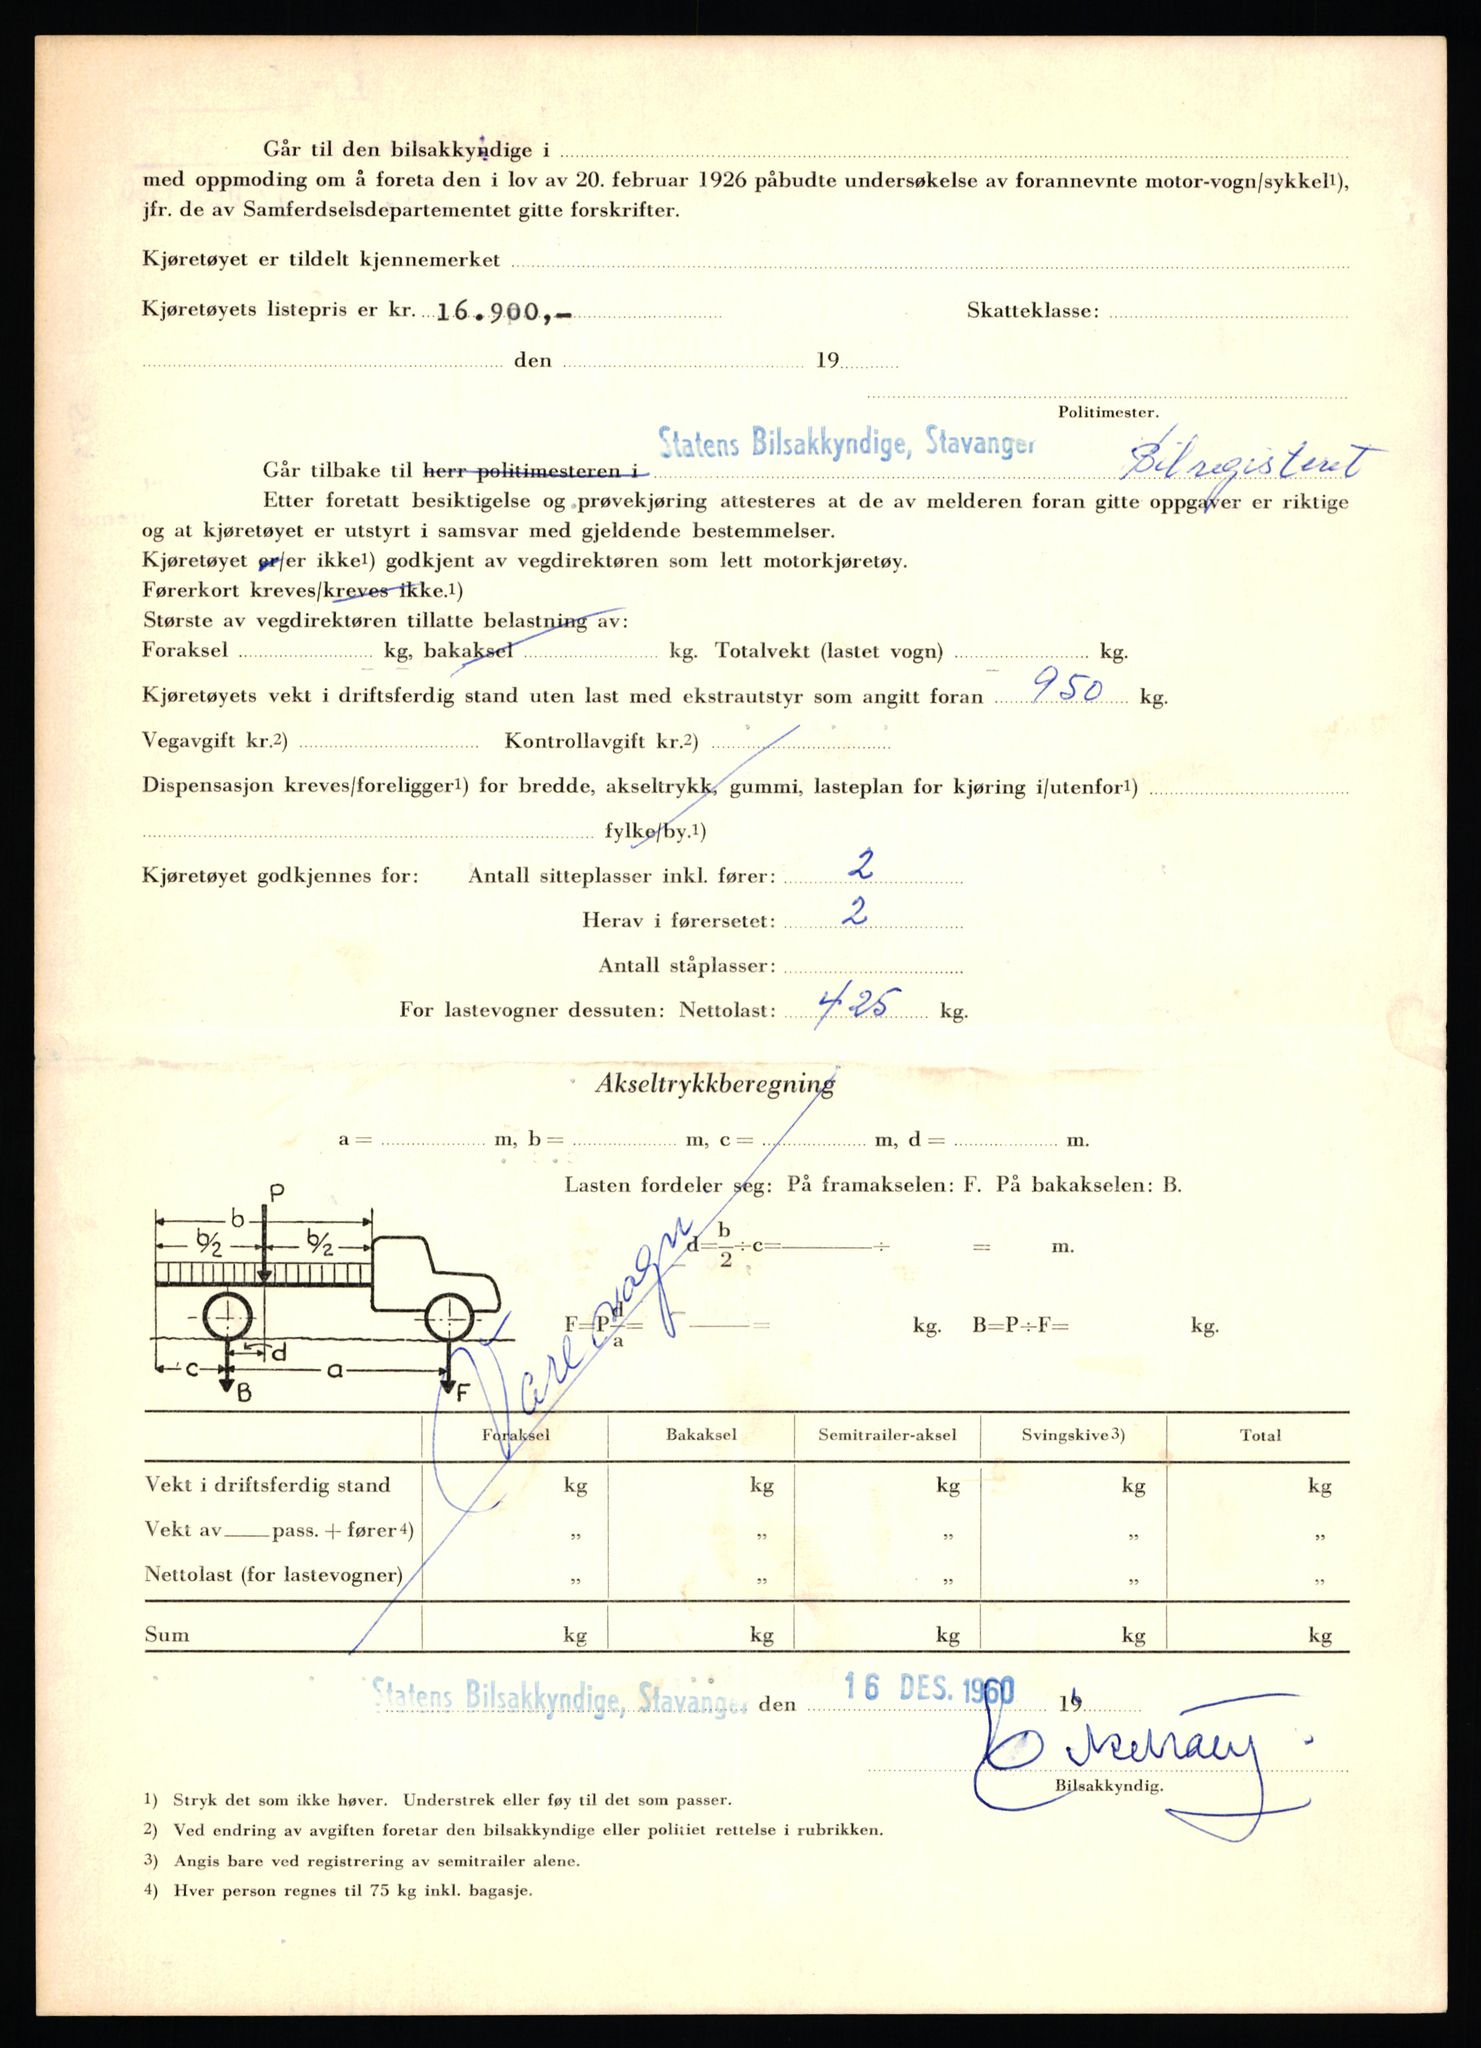 Går til den bilsakkyndige i
med oppmoding om å foreta den i lov av 20. februar 1926 påbudte undersøkelse av forannevnte motor-vogn/sykkel1),
jfr. de av Samferdselsdepartementet gitte forskrifter.
Kjøretøyet er tildelt kjennemerket
Kjøretøyets listepris er kr. 16.900,- Skatteklasse:
den 19
Politimester.
Statens Bilsakkyndige, Stavanger Bilregisteret
Går tilbake til herr politimesteren i
Etter foretatt besiktigelse og prøvekjøring attesteres at de av melderen foran gitte oppgaver er riktige
og at kjøretøyet er utstyrt i samsvar med gjeldende bestemmelser.
Kjøretøyet er/er ikke1) godkjent av vegdirektøren som lett motorkjøretøy.
Førerkort kreves/kreves ikke.1)
Største av vegdirektøren tillatte belastning av:
Foraksel kg, bakaksel kg. Totalvekt (lastet vogn) kg.
Kjøretøyets vekt i driftsferdig stand uten last med ekstrautstyr som angitt foran 950 kg.
Vegavgift kr.2) Kontrollavgift kr.2)
Dispensasjon kreves/foreligger1) for bredde, akseltrykk, gummi, lasteplan for kjøring i/utenfor1)
fylke/by.1)
Kjøretøyet godkjennes for: Antall sitteplasser inkl. fører: 2
Herav i førersetet: 2
Antall ståplasser:
For lastevogner dessuten: Nettolast: 425 kg.
Akseltrykkberegning
a = m, b = m, c = m, d = m.
Lasten fordeler seg: På framakselen: F. På bakakselen: B.
P
b
b/2 b/2
c d a
B F
d=b/2÷c= ÷ = m.
F=P d/a= = kg. B=P÷F= kg.
Varevogn
Foraksel Bakaksel Semitrailer-aksel Svingskive3) Total
Vekt i driftsferdig stand kg kg kg kg kg
Vekt av pass. + fører4) „ „ „ „ „
Nettolast (for lastevogner) „ „ „ „ „
Sum kg kg kg kg kg
Statens Bilsakkyndige, Stavanger den 16 DES. 1960 19
Bilsakkyndig.
1) Stryk det som ikke høver. Understrek eller føy til det som passer.
2) Ved endring av avgiften foretar den bilsakkyndige eller politiet rettelse i rubrikken.
3) Angis bare ved registrering av semitrailer alene.
4) Hver person regnes til 75 kg inkl. bagasje.